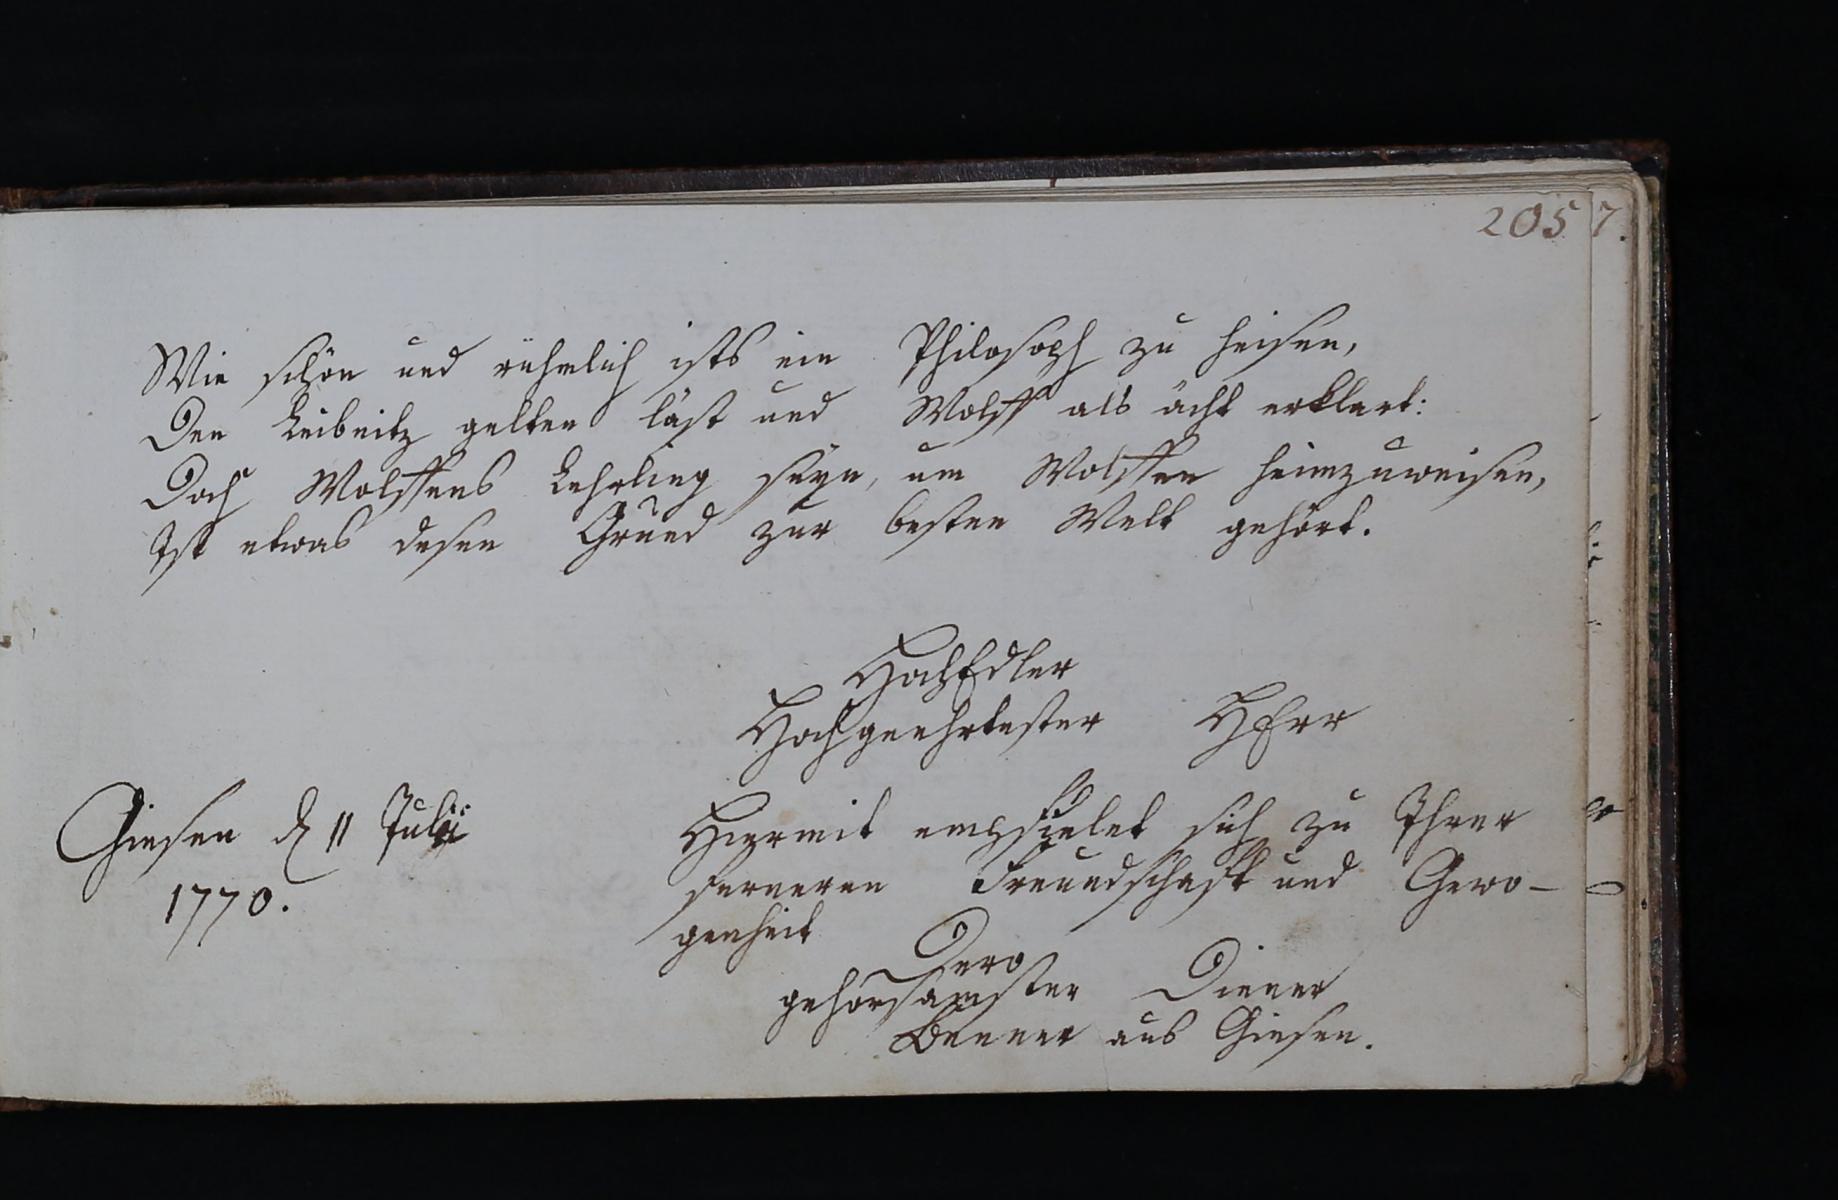 205
7.
Wie schön und rühmlich ists ein Philosoph zu heisen,
Den Leibnitz gelten läst und Wolff als ächt erklärt:
Doch Wolffens Lehrling seyn, um Wolffen heimzuweisen,
Ist etwas desen Grund zur besten Welt gehört.
HochEdler
Hochgeehrtester HErr
Giesen d 11 Julii
1770.
Hiermit empfielet sich zu Ihrer
ferneren Freundschaft und Gewo-
genheit
Dero
gehorsamster Diener
Benner aus Giesen.